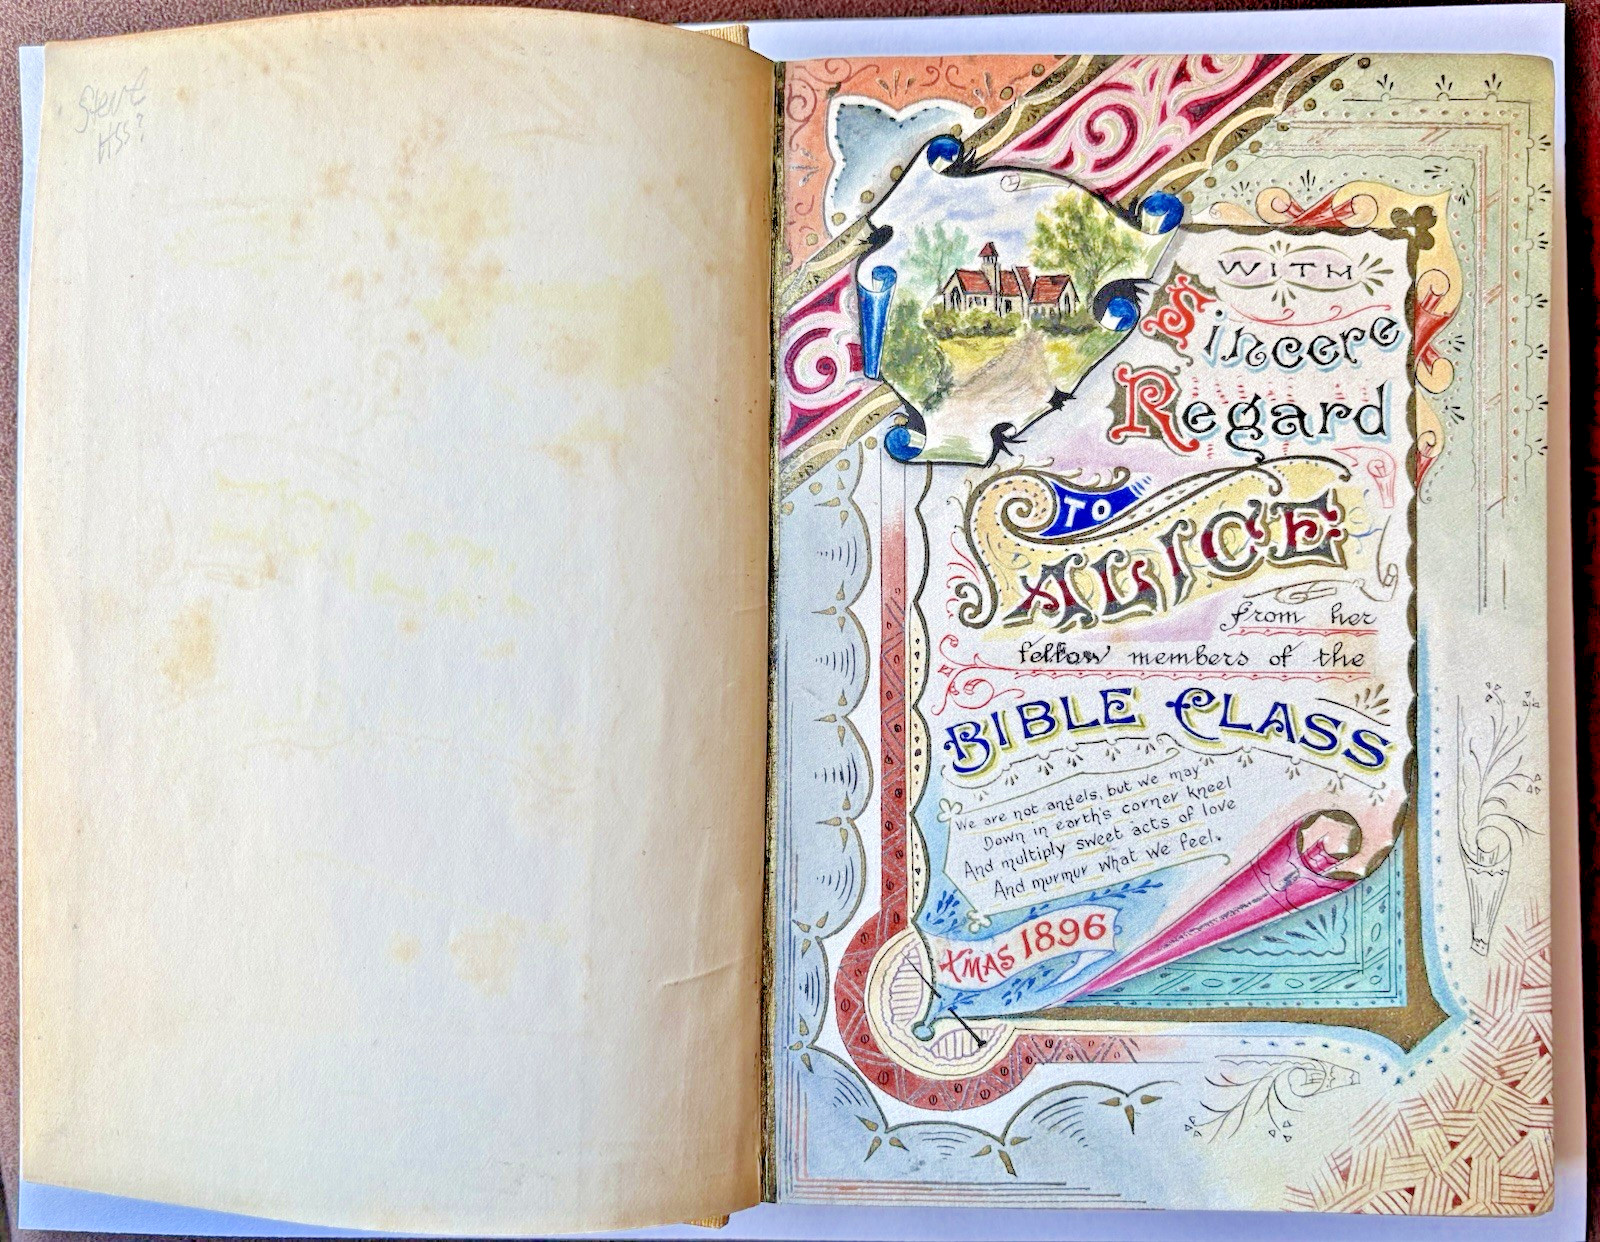 HSS?
WITH
Sincere
Regard
TO
ALICE
from her
fellow members of the
BIBLE CLASS
We are not angels, but we may
Down in earth's corner kneel
And multiply sweet acts of love
And murmur what we feel.
XMAS 1896